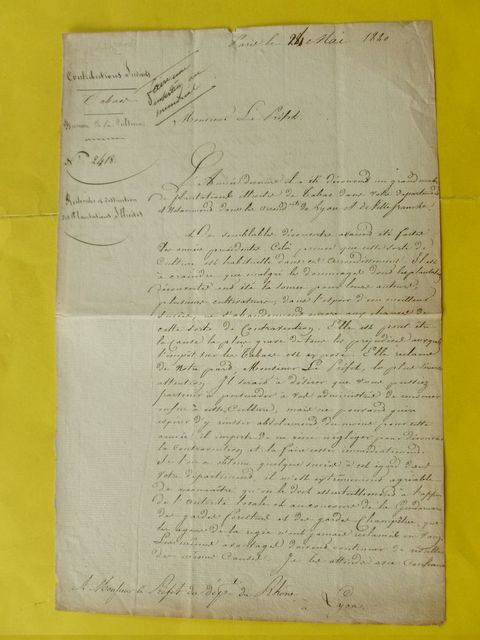 Paris le 24 Mai 1820
Contributions Indtes
Tabac
Bureau de la Culture
N° 2418.
Recherche et destruction
des Plantations Illicites
Monsieur Le Préfet,
L'Année dernière il a été découvert un grand nombre
de plantations illicites de Tabac dans votre département
et notamment dans les arrondts de Lyon et de Villefranche.
De semblables découvertes avaient été faites
les années précédentes. Cela prouve que cette sorte de
Culture est habituelle dans ces arrondissemens. Il est
à craindre que malgré le dommage dont les plantations
découvertes ont été la source pour leurs auteurs,
plusieurs cultivateurs, dans l'espoir d'un meilleur
succès, ne s'abandonnent encore aux chances de
cette sorte de Contravention. Elle est peut être
la cause la plus grave de tous les préjudices auxquels
l'impôt sur les Tabacs est exposé. Elle réclame
de votre part, Monsieur Le Préfet, la plus sérieuse
attention. Il serait à désirer que vous pussiez
parvenir à persuader à vos administrés de renoncer
enfin à cette Culture, mais ne pouvant guère
espérer d'y réussir absolument du moins pour cette
année il importe de ne rien négliger pour découvrir
la contravention et la faire cesser immédiatement.
Si l'on a obtenu quelque succès à cet égard dans
votre département, il m'est extrêmement agréable
de reconnaître qu'on le doit essentiellement à l'appui
de l'autorité locale et au concours de la Gendarmerie
des gardes forestiers et des gardes Champêtres, que
les agens de la régie n'ont jamais réclamés en vain.
Les mêmes avantages doivent continuer de résulter
des mêmes Causes. Je les attends avec Confiance
A Monsieur le Préfet du dépt du Rhône
à Lyon